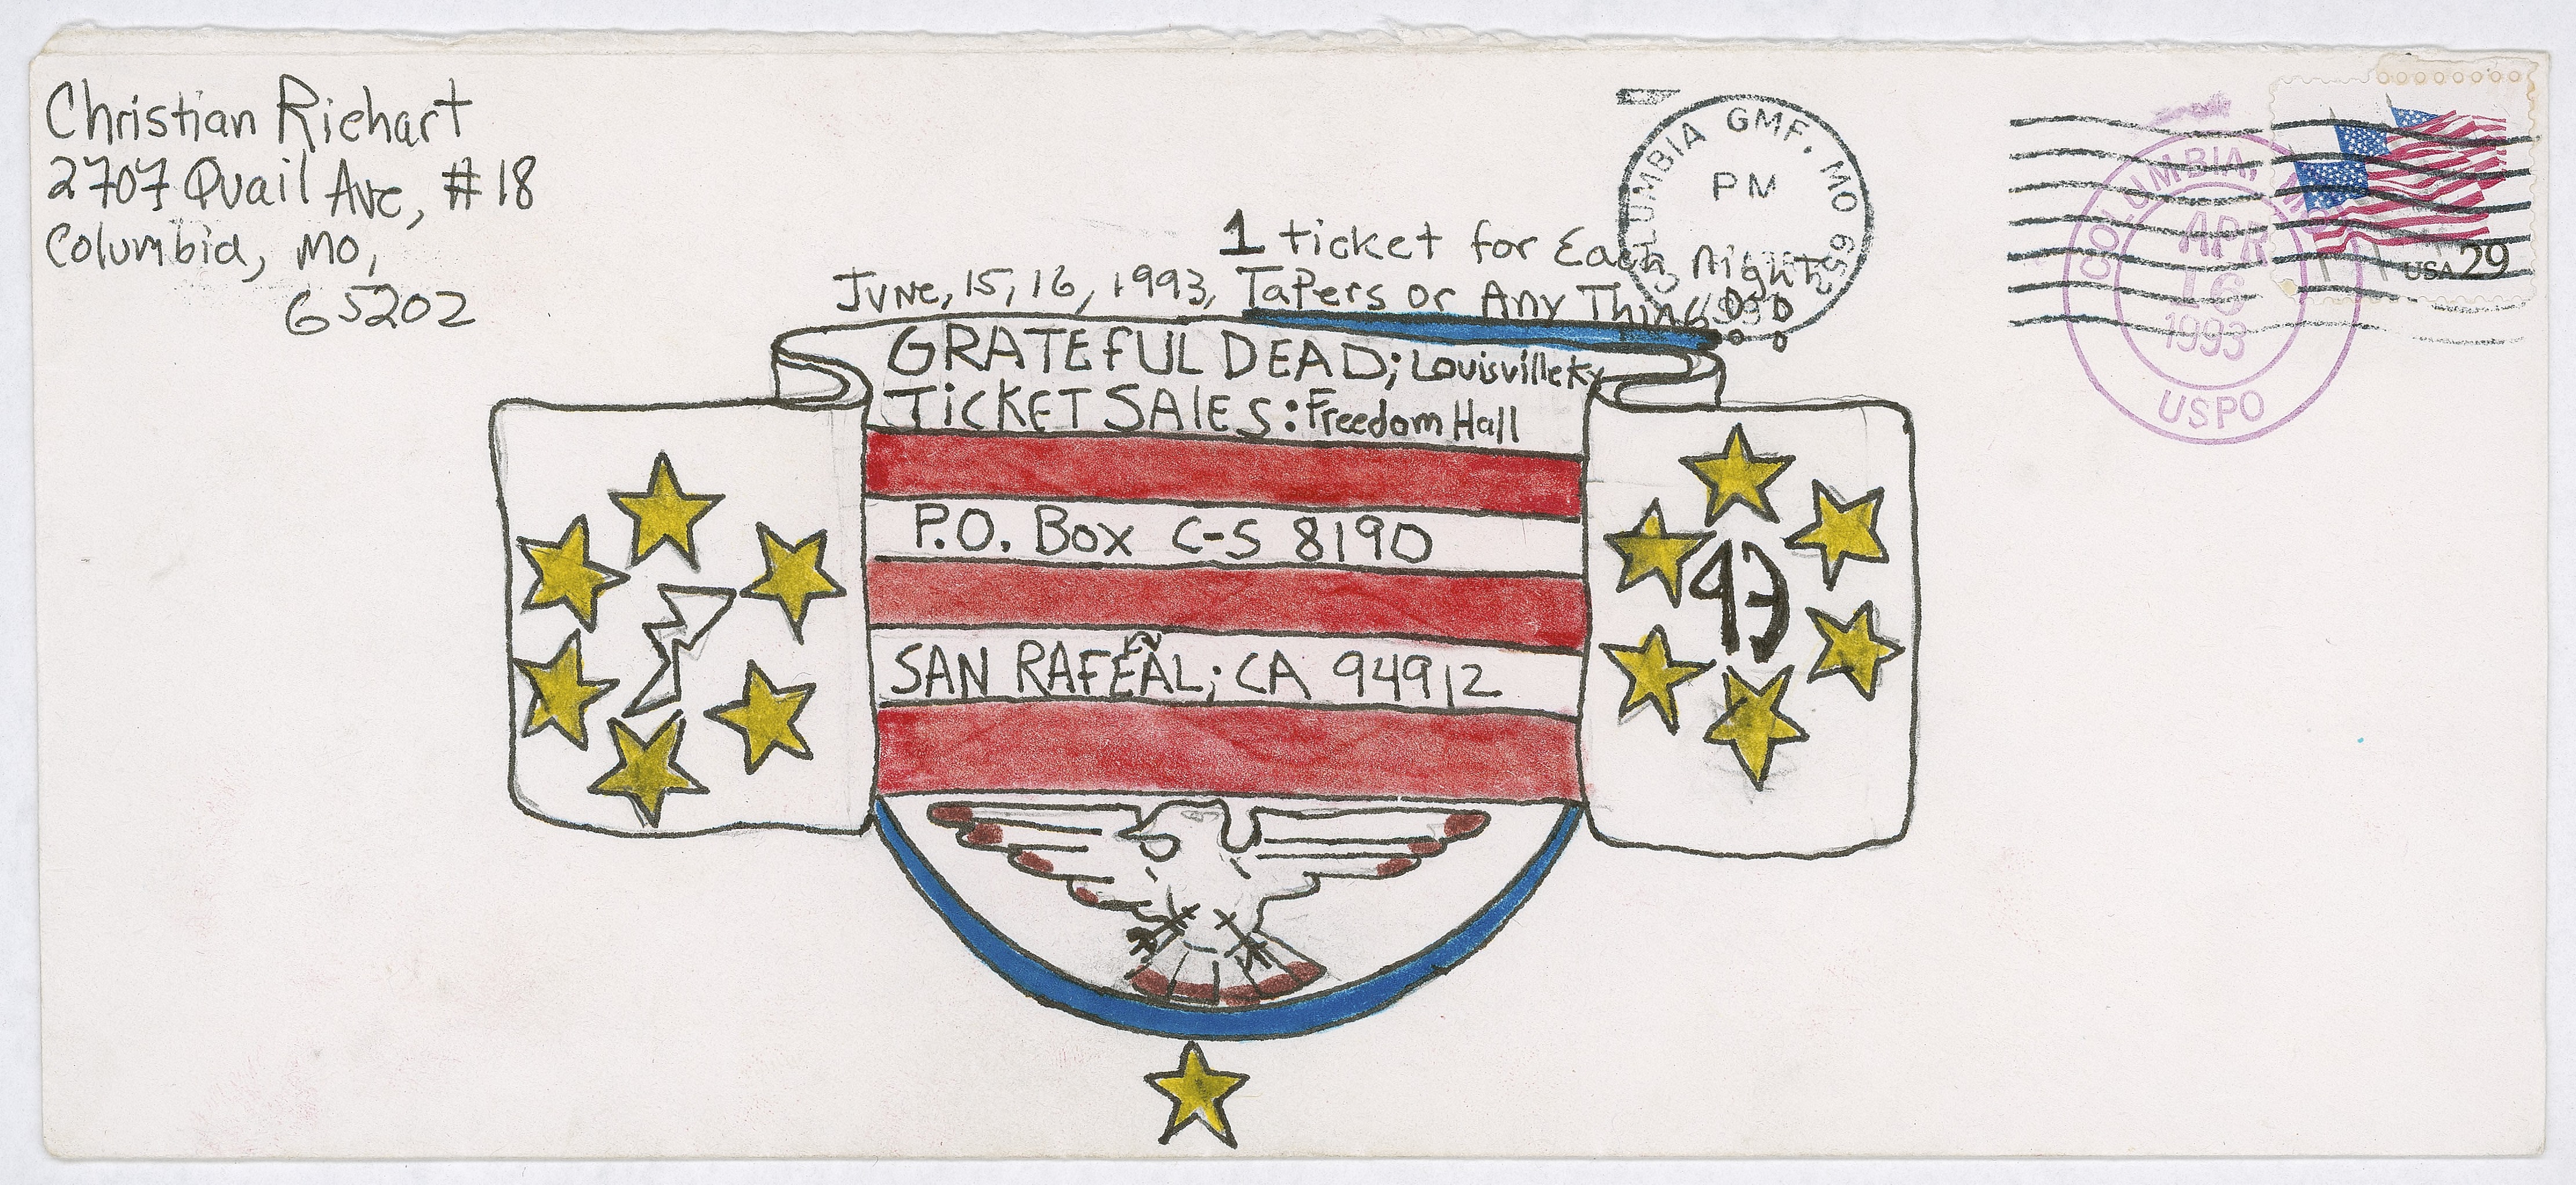 Christian Riehart
2707 Quail Ave, #18
Columbia, MO,
65202
1 ticket for Each Night
June, 15, 16, 1993, Tapers or Any Thing
GRATEFUL DEAD; Louisville Ky
TICKET SALES: Freedom Hall
P.O. Box C-S 8190
SAN RAFEAL; CA 94912
93
COLUMBIA GMF, MO 652
PM
1993
COLUMBIA, MO
APR
16
1993
USPO
USA 29